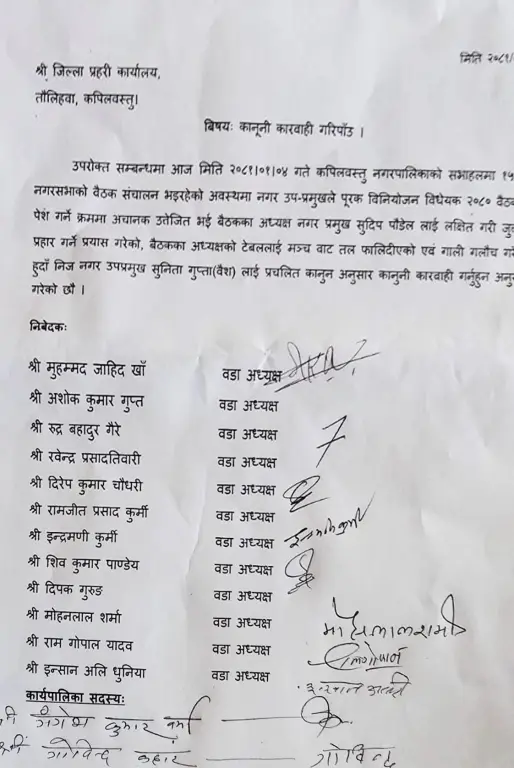 मिति २०८१/
श्री जिल्ला प्रहरी कार्यालय,
तौलिहवा, कपिलवस्तु।
बिषयः कानूनी कारवाही गरिपाँउ ।
उपरोक्त सम्बन्धमा आज मिति २०८१।०१।०४ गते कपिलवस्तु नगरपालिकाको सभाहलमा १५
नगरसभाको वैठक संचालन भइरहेको अवस्थमा नगर उप-प्रमुखले पूरक विनियोजन विधेयक २०८० वैठक
पेश गर्ने क्रममा अचानक उतेजित भई बैठकका अध्यक्ष नगर प्रमुख सुदिप पौडेल लाई लक्षित गरी जु
प्रहार गर्ने प्रयास गरेको, बैठकका अध्यक्षको टेबललाई मञ्च वाट तल फालिदीएको एवं गाली गलौच ग
हुदाँ निज नगर उपप्रमुख सुनिता गुप्ता(वैश) लाई प्रचलित कानुन अनुसार कानुनी कारवाही गर्नुहुन अनु
गरेको छौ ।
निबेदकः
श्री मुहम्मद जाहिद खाँ वडा अध्यक्ष
श्री अशोक कुमार गुप्त वडा अध्यक्ष
श्री रुद्र बहादुर गैरे वडा अध्यक्ष
श्री रवेन्द्र प्रसादतिवारी वडा अध्यक्ष
श्री दिरेप कुमार चौधरी वडा अध्यक्ष
श्री रामजीत प्रसाद कुर्मी वडा अध्यक्ष
श्री इन्द्रमणी कुर्मी वडा अध्यक्ष
श्री शिव कुमार पाण्डेय वडा अध्यक्ष
श्री दिपक गुरुङ वडा अध्यक्ष
श्री मोहनलाल शर्मा वडा अध्यक्ष मोहनलालशर्मा
श्री राम गोपाल यादव वडा अध्यक्ष
श्री इन्सान अलि धुनिया वडा अध्यक्ष
कार्यपालिका सदस्यः
गंगेश कुमार वर्मा
गोविन्द कहार गोविन्द